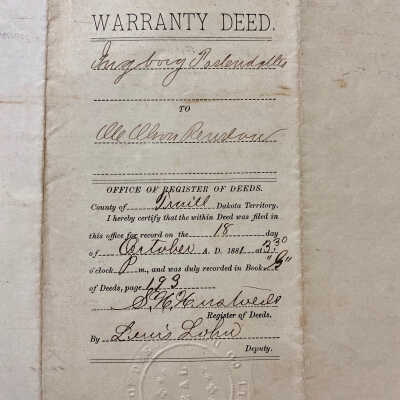 WARRANTY DEED.
Ingborg
TO
Ole Olson
OFFICE OF REGISTER OF DEEDS.
County of Traill Dakota Territory.
I hereby certify that the within Deed was filed in
this office for record on the 18 day
of October A. D. 1881 at 3:30
o'clock P m., and was duly recorded in Book "G"
of Deeds, page 193
Register of Deeds.
By Lewis Lohn
Deputy.